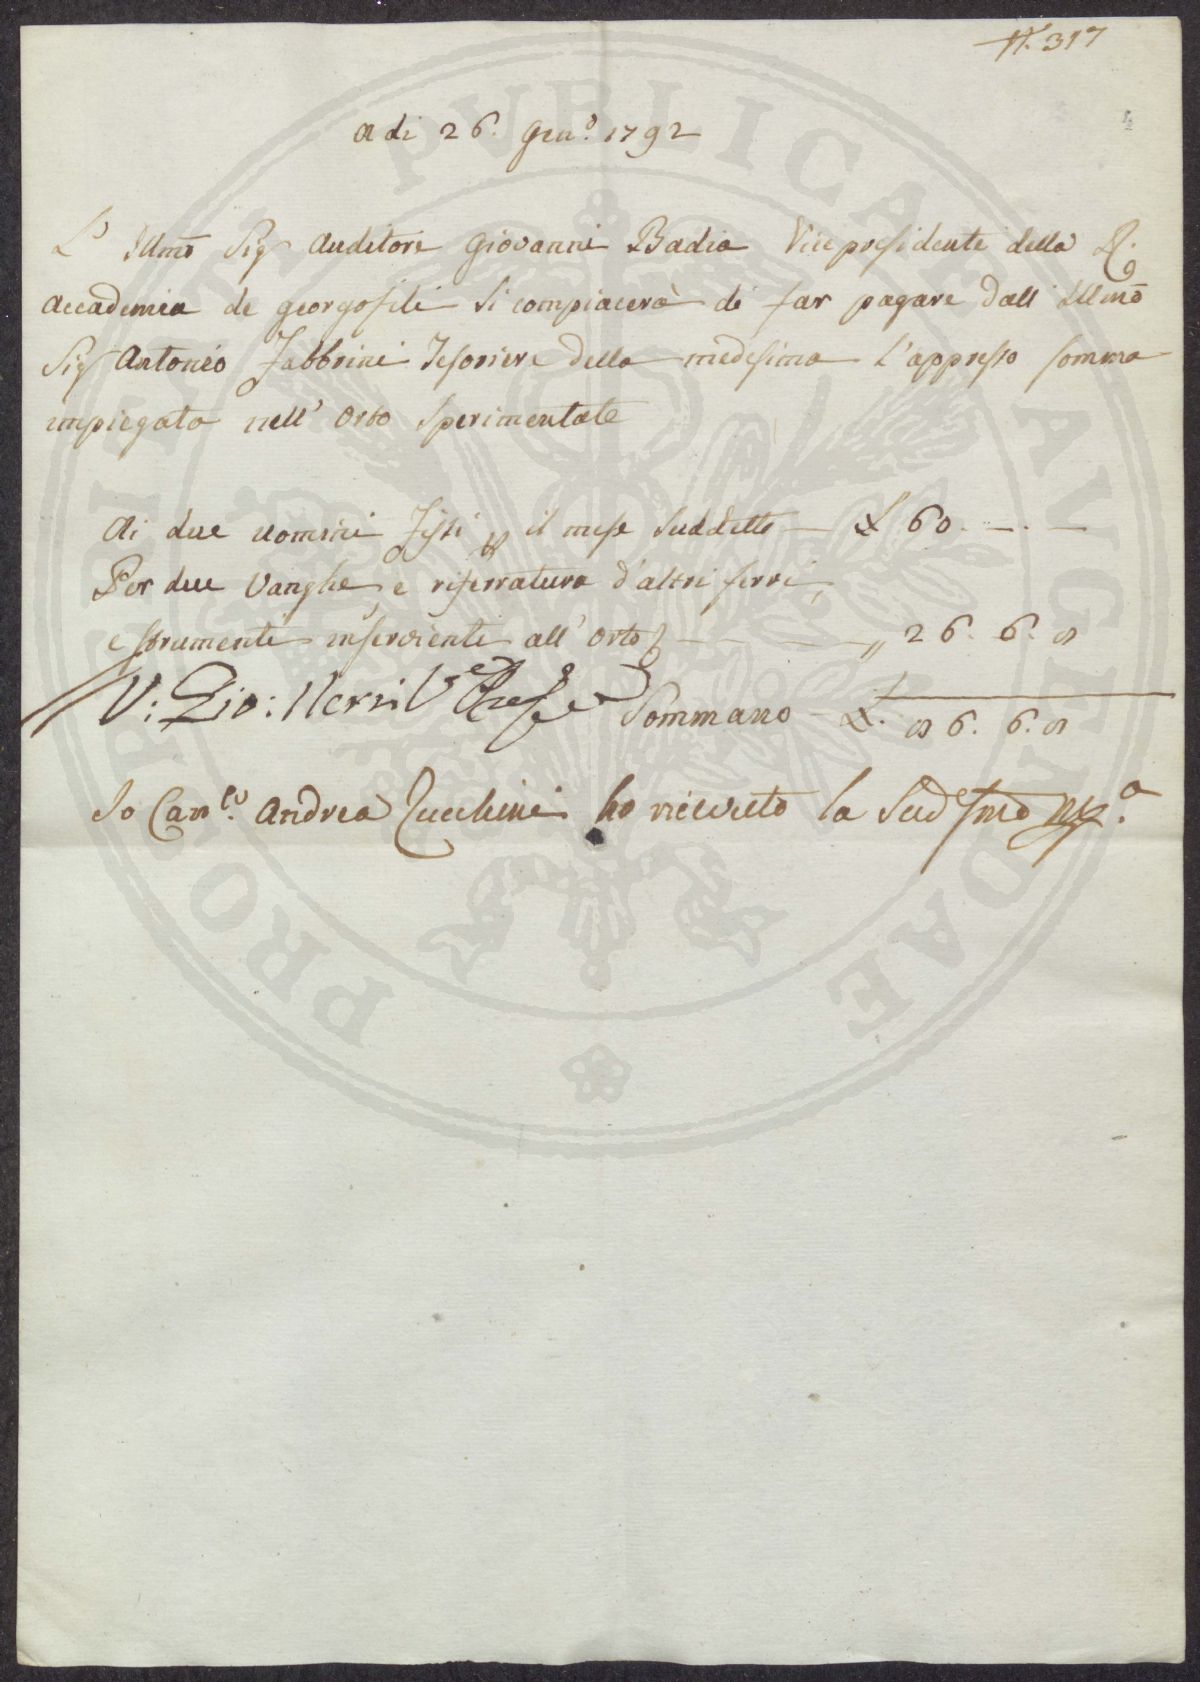 N. 317
a di 26. Gen.o 1792
L' Illmo Sig Auditore Giovanni Badia Vice presidente della R.
accademia de georgofili si compiacerà di far pagare dall' Illmo
Sig Antonio Fabbrini Tesoriere della medesima l'appresso somma
impiegata nell' orto sperimentale
Ai due uomini fissi p il mese suddetto — £ 60. — . —
Per due Vanghe, e riferratura d'altri ferri,
e strumenti inservienti all' orto — — — „ 26. 6. 8
V: Gio: Neri V.e Pres.e
Sommano — £. 86. 6. 8
Io Can.co Andrea Zucchini ho ricevuto la Sud
PROSPERITATI PUBLICAE AUGENDAE